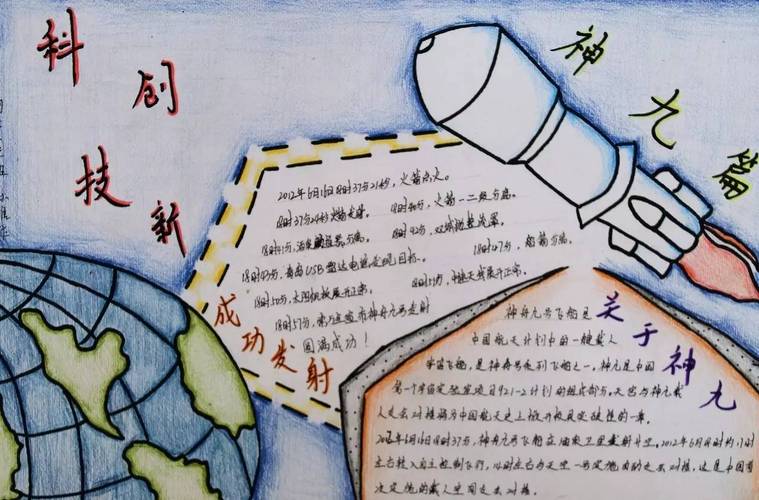 科
创
技
新
神
九
篇
2012年6月16日18时37分21秒，火箭点火。
18时37分24秒火箭起飞。
18时40分，火箭一二级分离。
18时42分，
18时43分，青岛USB雷达电器发现目标。
18时47分，船箭分离。
18时50分，太阳帆板展开正常。
18时57分，
神舟九号发射
圆满成功！
成功发射
关于神九
神舟九号飞船是
中国航天计划中的一艘载人
宇宙飞船，是神舟号系列飞船之一。神九是中国
第一个宇宙实验室项目921-2计划的组成部分，天宫与神九载
人交会对接将为中国航天史上掀开极具突破性的一章。
2012年6月16日18时37分，神舟九号飞船在酒泉卫星发射升空。2012年6月18日时约11时
左右转入自主控制飞行，14时左右与天宫一号实施自动交会对接，这是中国首
次实施的载人空间交会对接。